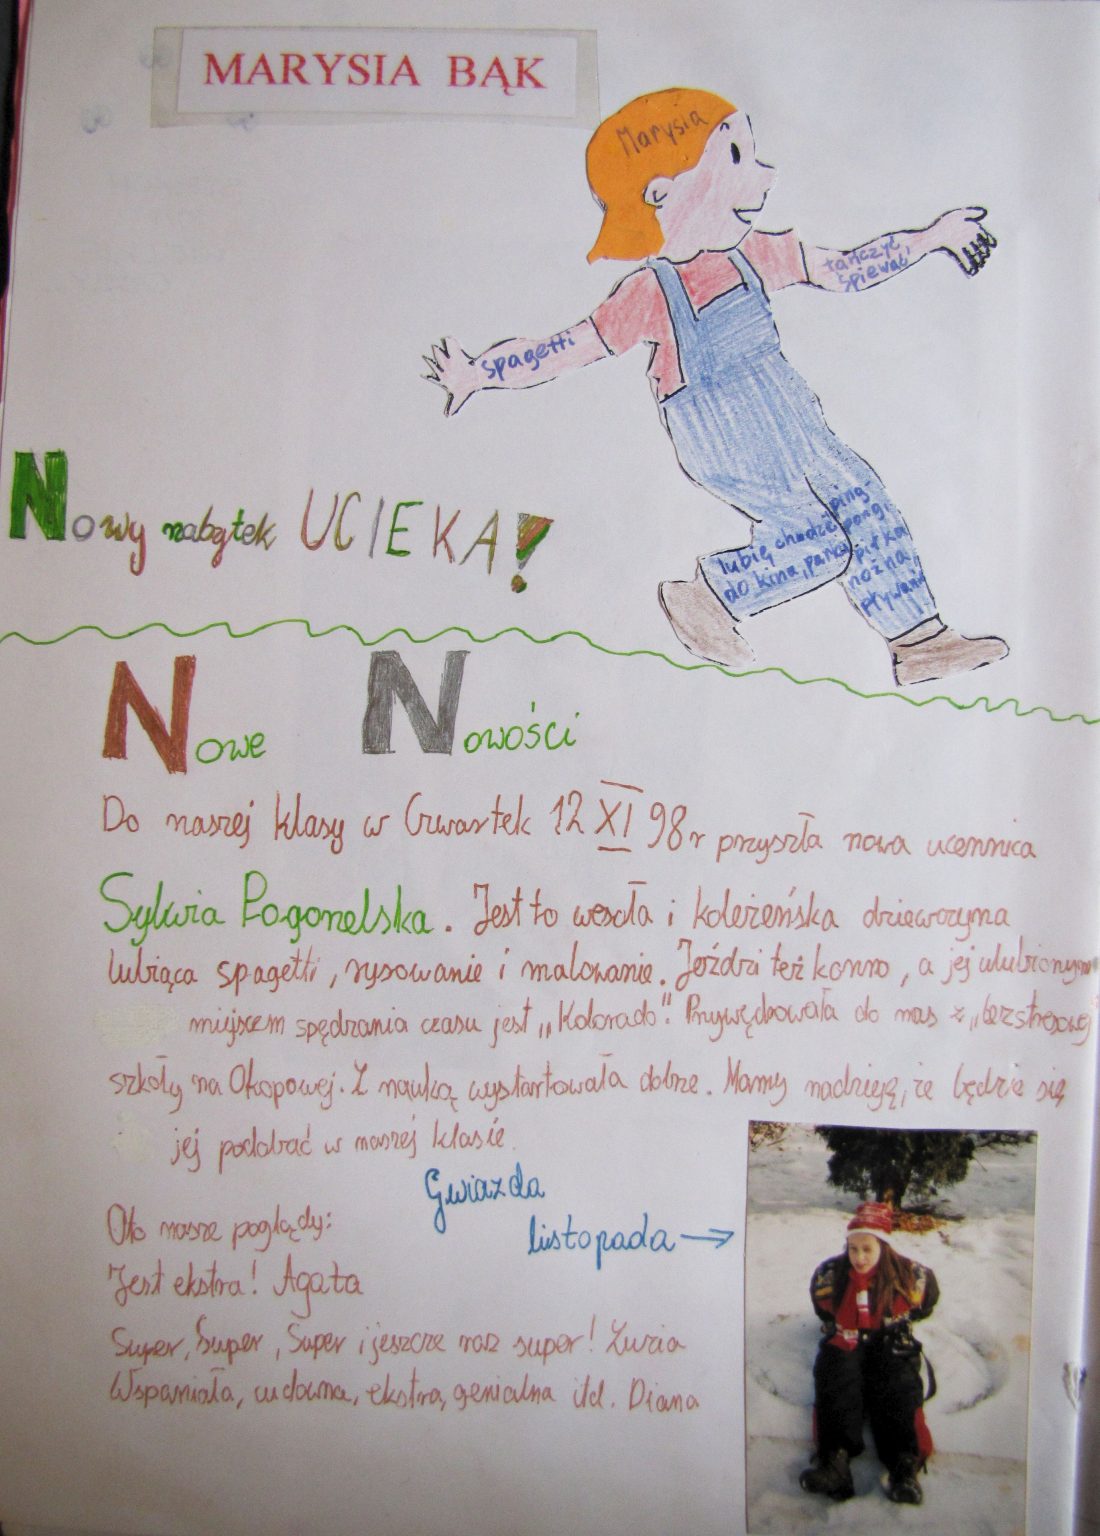 MARYSIA BĄK
Marysia
tańczyć
śpiewać
spagetti
Nowy nabytek UCIEKA!
lubię chodzić
do kina, parku
ping-
pong,
piłka
nożna,
pływanie
Nowe Nowości
Do naszej klasy w Czwartek 12 XI 98r przyszła nowa uczennica
Sylwia Pogonelska. Jest to wesoła i koleżeńska dziewczyna
lubiąca spagetti, rysowanie i malowanie. Jeździ też konno, a jej ulubionym
miejscem spędzania czasu jest „Kolorado". Przywędrowała do nas z „bezstresowej
szkoły na Okopowej. Z nauką wystartowała dobrze. Mamy nadzieję, że będzie się
jej podobać w naszej klasie.
Gwiazda
listopada →
Oto nasze poglądy:
Jest ekstra! Agata
Super, Super, Super i jeszcze raz super! Zuzia
Wspaniała, cudowna, ekstra, genialna itd. Diana